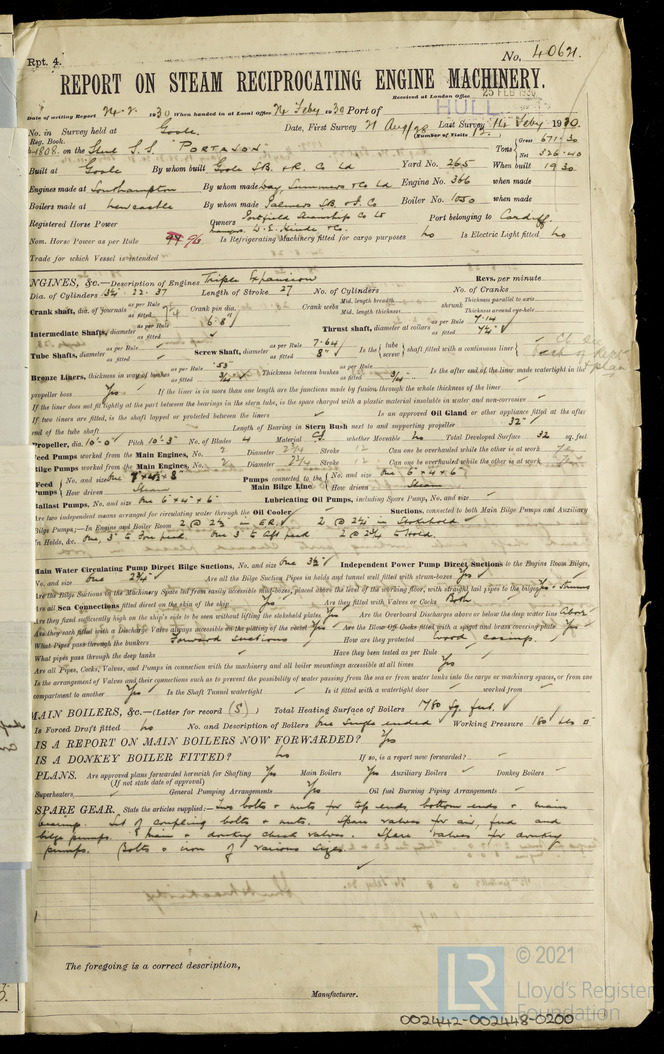 Rpt. 4.
No. 40621.
REPORT ON STEAM RECIPROCATING ENGINE MACHINERY.
Received at London Office 25 FEB 1930
Date of writing Report 24.2.1930 When handed in at Local Office 24 Feby 1930 Port of HULL
No. in Survey held at Goole. Date, First Survey 21 Aug/28 Last Survey 14 Feby 1930.
Reg. Book. (Number of Visits
on the S.S. "PORTAXON" Tons Gross 671.30 Net 326.40
Built at Goole By whom built Goole S.B. & R. Co Ld Yard No. 265 When built 1930
Engines made at Southampton By whom made Day, Summers & Co Ld Engine No. 366 when made
Boilers made at Newcastle By whom made Palmers S.B. & I. Co Boiler No. 1050 when made
Registered Horse Power Owners Steamship Co Ld Port belonging to Cardiff
Nom. Horse Power as per Rule 94 96 Is Refrigerating Machinery fitted for cargo purposes No Is Electric Light fitted No
Trade for which Vessel is intended
ENGINES, &c.—Description of Engines Triple Expansion Revs. per minute
Dia. of Cylinders 22. 37 Length of Stroke 27 No. of Cylinders No. of Cranks
Crank shaft, dia. of journals as per Rule as fitted 7¼ Crank pin dia. Crank webs Mid. length breadth Mid. length thickness shrunk Thickness parallel to axis Thickness around eye-hole
Intermediate Shafts, diameter as per Rule 6.8" as fitted Thrust shaft, diameter at collars as per Rule 7.14 as fitted 7¼"
Tube Shafts, diameter as per Rule as fitted Screw Shaft, diameter as per Rule 7.64 as fitted 8" Is the tube screw shaft fitted with a continuous liner
Bronze Liners, thickness in way of bushes as per Rule .55" as fitted Thickness between bushes as per Rule as fitted Is the after end of the liner made watertight in the
propeller boss Yes If the liner is in more than one length are the junctions made by fusion through the whole thickness of the liner
If the liner does not fit tightly at the part between the bearings in the stern tube, is the space charged with a plastic material insoluble in water and non-corrosive
If two liners are fitted, is the shaft lapped or protected between the liners Is an approved Oil Gland or other appliance fitted at the after
end of the tube shaft Length of Bearing in Stern Bush next to and supporting propeller 32"
Propeller, dia. 10'-0" Pitch 10'-3" No. of Blades 4 Material CI whether Moveable No Total Developed Surface 32 sq. feet
Feed Pumps worked from the Main Engines, No. 2 Diameter 2¾ Stroke 12 Can one be overhauled while the other is at work Yes
Bilge Pumps worked from the Main Engines, No. 2 Diameter 2¾ Stroke 12 Can one be overhauled while the other is at work Yes
Feed Pumps No. and size How driven Steam Pumps connected to the Main Bilge Line No. and size One 6"×4"×6" How driven Steam
Ballast Pumps, No. and size One 6"×4"×6" Lubricating Oil Pumps, including Spare Pump, No. and size
Are two independent means arranged for circulating water through the Oil Cooler Suctions, connected to both Main Bilge Pumps and Auxiliary
Bilge Pumps;—In Engine and Boiler Room 2 @ 2½ in E.R. 2 @ 2½ in Stokehold
In Holds, &c. One, 3" to Fore peak. One 3" to Aft peak 2 @ 2¼ to Hold.
Main Water Circulating Pump Direct Bilge Suctions, No. and size One 3½" Independent Power Pump Direct Suctions to the Engine Room Bilges,
No. and size One 2¾" Are all the Bilge Suction Pipes in holds and tunnel well fitted with strum-boxes Yes
Are the Bilge Suctions in the Machinery Space led from easily accessible mud-boxes, placed above the level of the working floor, with straight tail pipes to the bilges Yes & Strums
Are all Sea Connections fitted direct on the skin of the ship Yes Are they fitted with Valves or Cocks Both
Are they fixed sufficiently high on the ship's side to be seen without lifting the stokehold plates Yes Are the Overboard Discharges above or below the deep water line Above
Are they each fitted with a Discharge Valve always accessible on the plating of the vessel Yes Are the Blow Off Cocks fitted with a spigot and brass covering plate Yes
What Pipes pass through the bunkers Forward suctions How are they protected Wood casings.
What pipes pass through the deep tanks Have they been tested as per Rule
Are all Pipes, Cocks, Valves, and Pumps in connection with the machinery and all boiler mountings accessible at all times Yes
Is the arrangement of Valves and their connections such as to prevent the possibility of water passing from the sea or from water tanks into the cargo or machinery spaces, or from one
compartment to another Yes Is the Shaft Tunnel watertight Is it fitted with a watertight door worked from
MAIN BOILERS, &c.—(Letter for record (S)) Total Heating Surface of Boilers 1780 sq. feet.
Is Forced Draft fitted No No. and Description of Boilers One single ended Working Pressure 180 lbs
IS A REPORT ON MAIN BOILERS NOW FORWARDED? Yes
IS A DONKEY BOILER FITTED? No If so, is a report now forwarded?
PLANS. Are approved plans forwarded herewith for Shafting Yes Main Boilers Yes Auxiliary Boilers Donkey Boilers
(If not state date of approval)
Superheaters General Pumping Arrangements Yes Oil fuel Burning Piping Arrangements
SPARE GEAR. State the articles supplied:— Two bolts & nuts for top ends, bottom ends & main
bearings. Set of coupling bolts & nuts. Spare valves for air, feed and
bilge pumps. & main & donkey check valves. Spare valves for donkey
pumps. Bolts & iron of various sizes.
The foregoing is a correct description,
Manufacturer.
© 2021
LR
Lloyd's Register
Foundation
002442-002448-0200